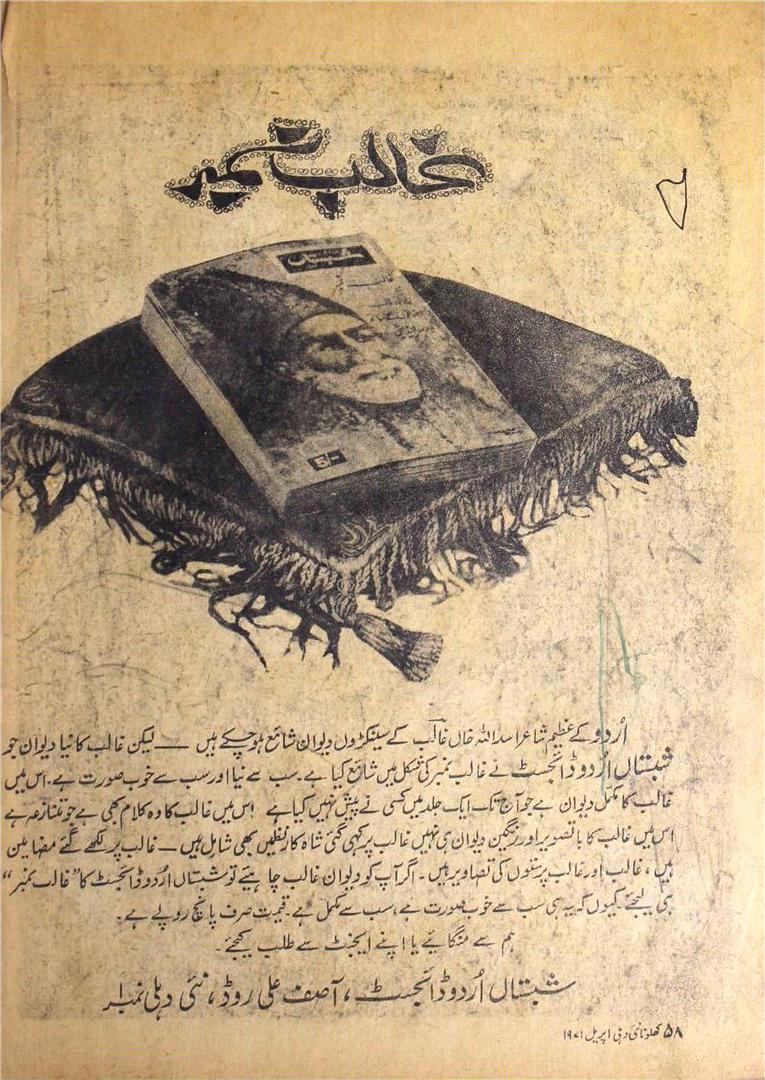 غالب نمبر
شبستان
اُردو کے عظیم شاعر اسد اللہ خاں غالبؔ کے سینکڑوں دیوان شائع ہو چکے ہیں — لیکن غالب کا نیا دیوان جو
شبستاں اُردو ڈائجسٹ نے غالب نمبر کی شکل میں شائع کیا ہے۔ سب سے نیا اور سب سے خوب صورت ہے۔ اس میں
غالب کا مکمل دیوان ہے جو آج تک ایک جلد میں کسی نے پیش نہیں کیا ہے اس میں غالب کا وہ کلام بھی ہے جو متنازعہ ہے
اس میں غالب کا با تصویر اور رنگین دیوان ہی نہیں غالب پر کہی گئی شاہ کار نظمیں بھی شامل ہیں — غالب پر لکھے گئے مضامین
ہیں، غالب اور غالب پرستوں کی تصاویر ہیں۔ اگر آپ کو دیوان غالب چاہیئے تو شبستاں اُردو ڈائجسٹ کا "غالب نمبر"
ہی لیجئے۔ کیوں کہ یہ ہی سب سے خوب صورت ہے، سب سے مکمل ہے۔ قیمت صرف پانچ روپے ہے۔
ہم سے منگائیے یا اپنے ایجنٹ سے طلب کیجئے۔
شبستاں اُردو ڈائجسٹ، آصف علی روڈ، نئی دہلی نمبر۱
۵۸ کھلونا نئی دہلی اپریل ۱۹۷۱